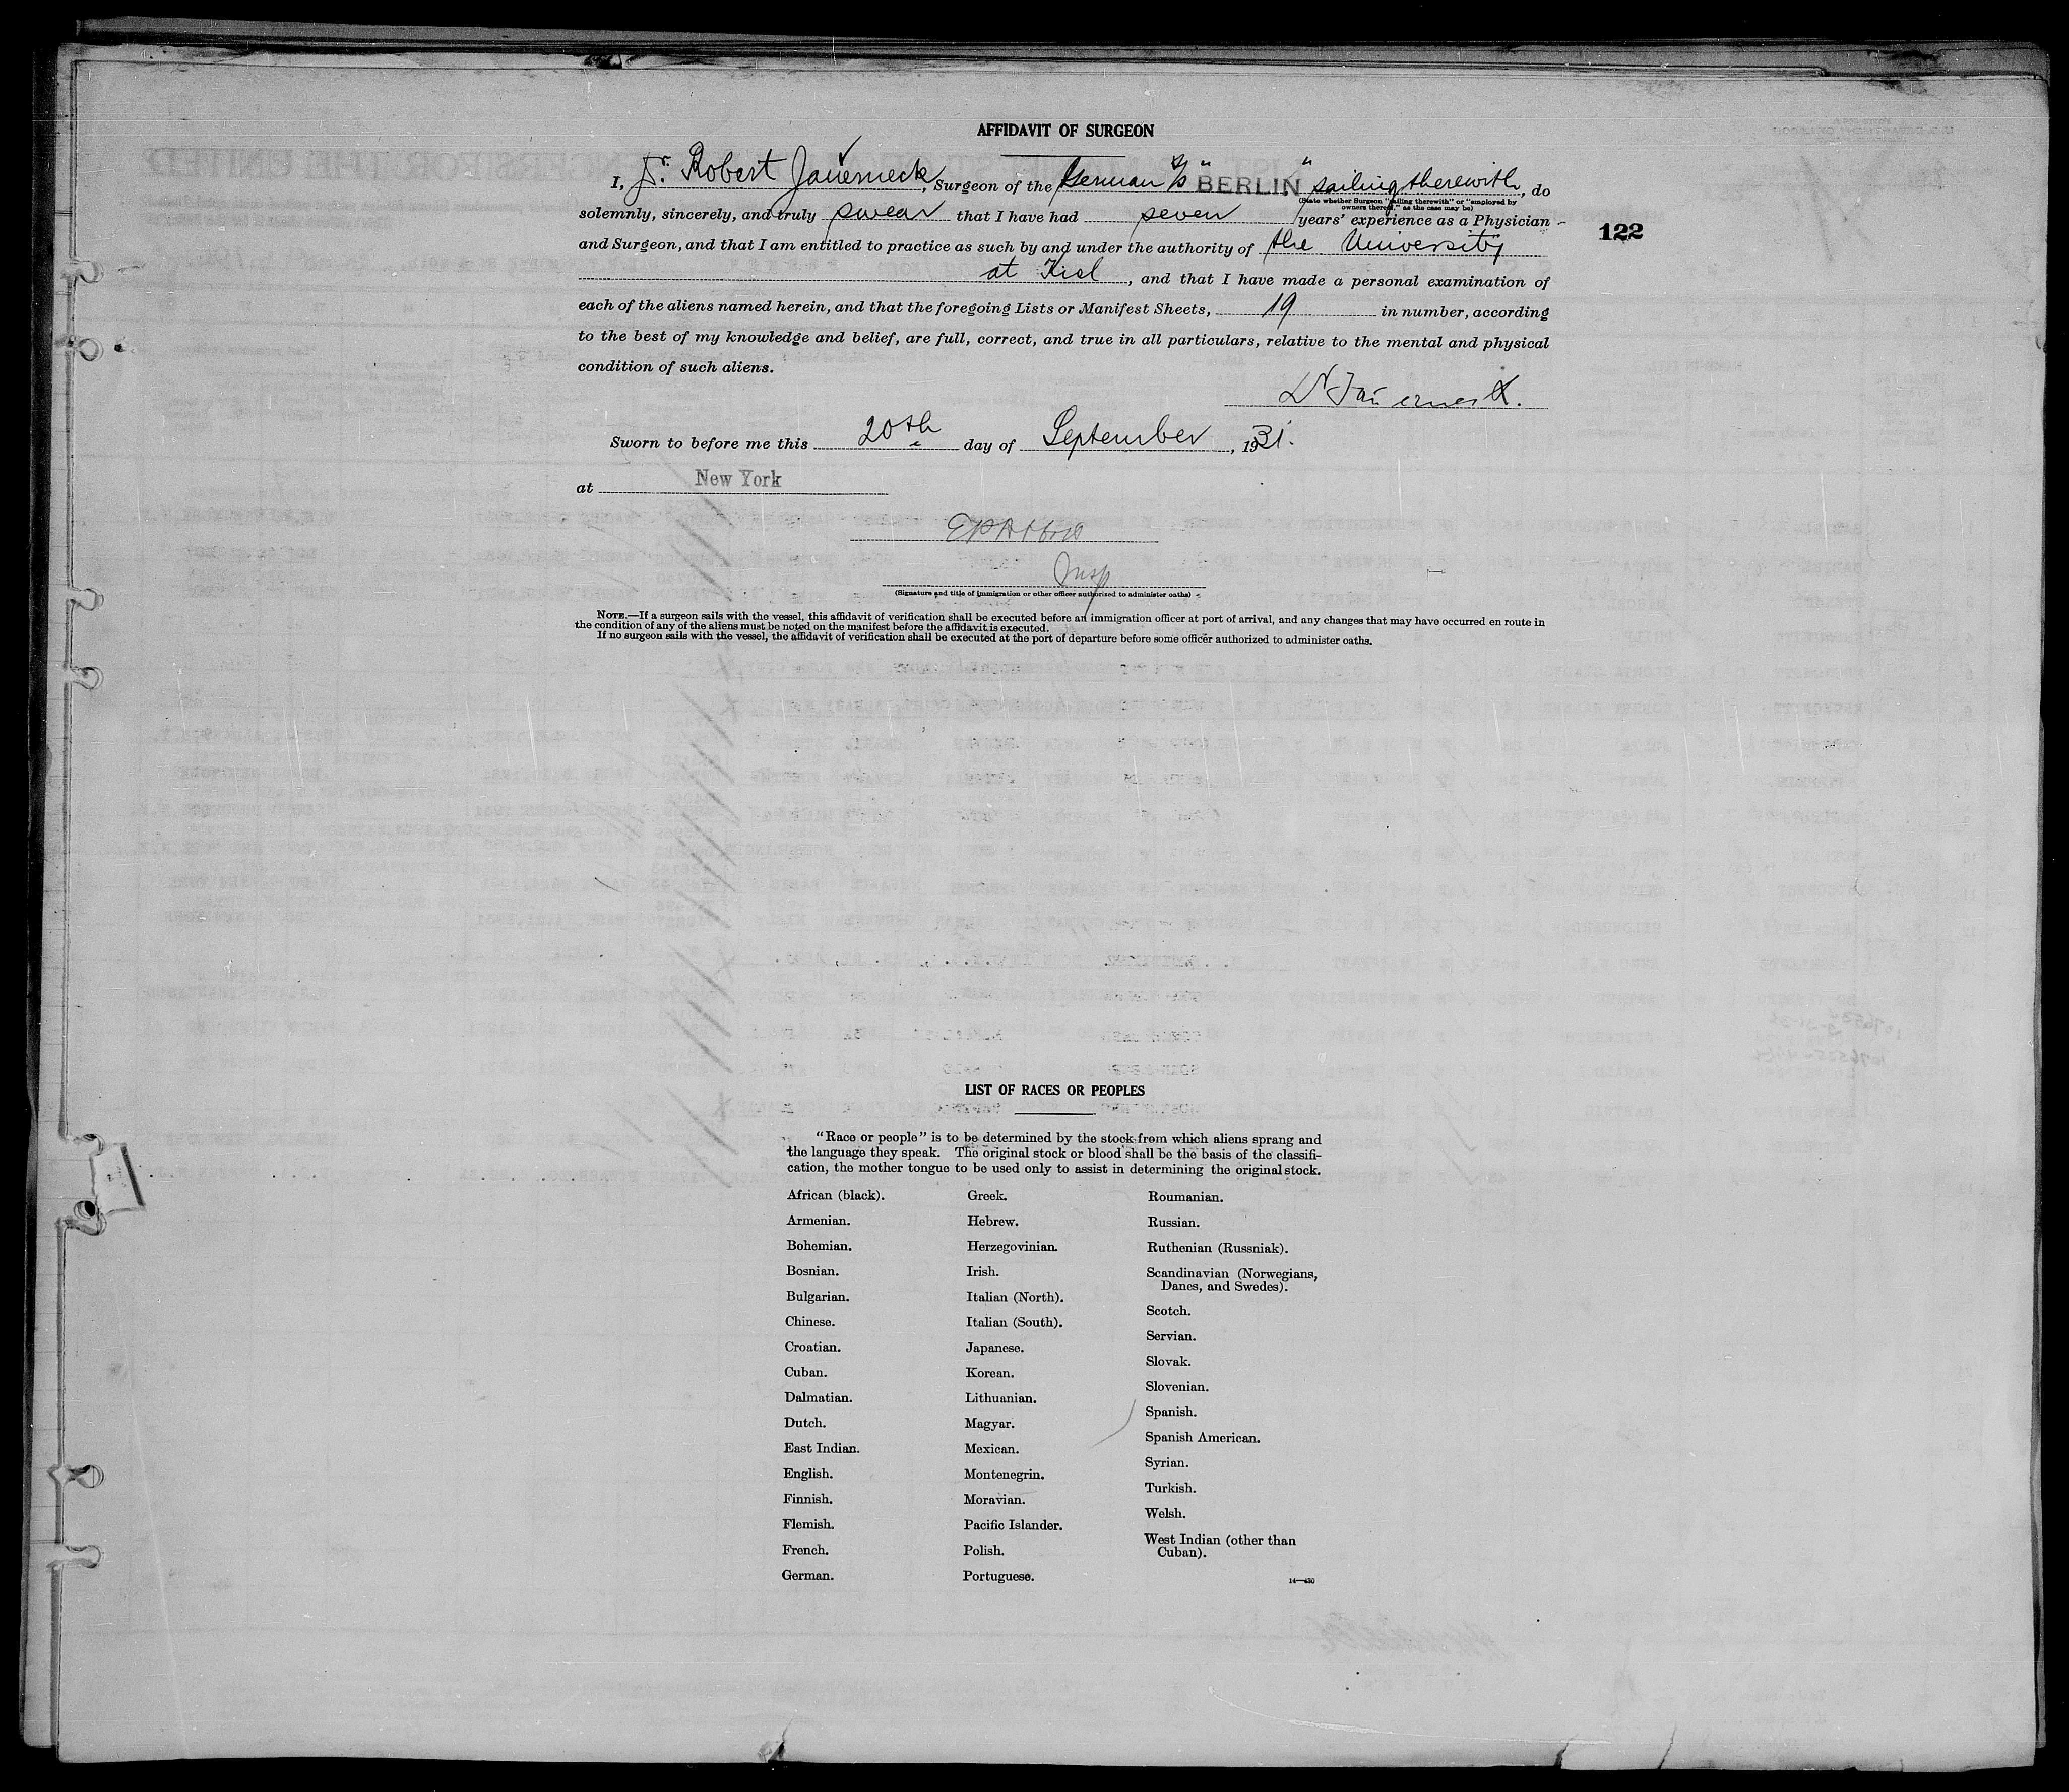 AFFIDAVIT OF SURGEON
I, Dr. Robert Jauerneck, Surgeon of the German S/S "BERLIN," sailing therewith, do
(State whether Surgeon "sailing therewith" or "employed by
owners thereof," as the case may be)
solemnly, sincerely, and truly swear that I have had seven years' experience as a Physician
122
and Surgeon, and that I am entitled to practice as such by and under the authority of the University
at Kiel, and that I have made a personal examination of
each of the aliens named herein, and that the foregoing Lists or Manifest Sheets, 19 in number, according
to the best of my knowledge and belief, are full, correct, and true in all particulars, relative to the mental and physical
condition of such aliens.
Dr Jauerneck.
Sworn to before me this 20th day of September, 1931.
at New York
Insp
(Signature and title of immigration or other officer authorized to administer oaths)
NOTE.—If a surgeon sails with the vessel, this affidavit of verification shall be executed before an immigration officer at port of arrival, and any changes that may have occurred en route in
the condition of any of the aliens must be noted on the manifest before the affidavit is executed.
If no surgeon sails with the vessel, the affidavit of verification shall be executed at the port of departure before some officer authorized to administer oaths.
LIST OF RACES OR PEOPLES
"Race or people" is to be determined by the stock from which aliens sprang and
the language they speak. The original stock or blood shall be the basis of the classifi-
cation, the mother tongue to be used only to assist in determining the original stock.
African (black).
Armenian.
Bohemian.
Bosnian.
Bulgarian.
Chinese.
Croatian.
Cuban.
Dalmatian.
Dutch.
East Indian.
English.
Finnish.
Flemish.
French.
German.
Greek.
Hebrew.
Herzegovinian.
Irish.
Italian (North).
Italian (South).
Japanese.
Korean.
Lithuanian.
Magyar.
Mexican.
Montenegrin.
Moravian.
Pacific Islander.
Polish.
Portuguese.
Roumanian.
Russian.
Ruthenian (Russniak).
Scandinavian (Norwegians,
Danes, and Swedes).
Scotch.
Servian.
Slovak.
Slovenian.
Spanish.
Spanish American.
Syrian.
Turkish.
Welsh.
West Indian (other than
Cuban).
14—430